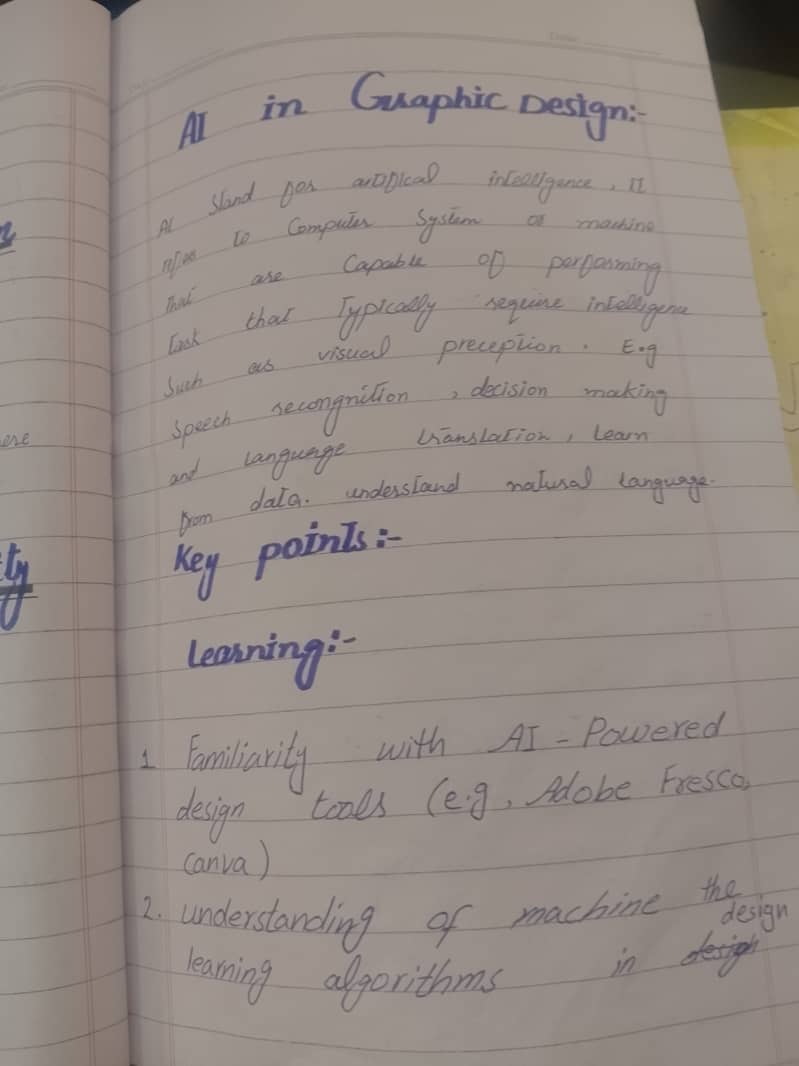 AI in Graphic Design:-
AI stand for artifical intelligence, It
refer to Computer System or machine
that are Capable of performing
task that Typically require intelligence
Such as visual preception. E.g
Speech recongnition, decision making
and language translation, Learn
from data. understand natural language.
Key points:-
Learning:-
1 Familiarity with AI-Powered
design tools (e.g, Adobe Fresco,
Canva)
2. understanding of machine the
design
learning algorithms in design
ere
ty